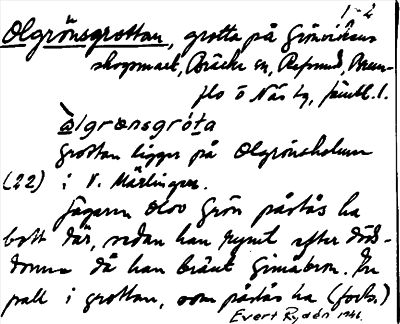 1-2
Olgrönsgrottan, grotta på Grönvikens
skogsmark, Bräcke sn, Refsund, Brun-
flo o Näs tg, Jämtl. l.
ɷlgrønsgróta
Grottan ligger på Olgrönsholmen
(22) i V. Märlingen.
Jägaren Olov Grön påstås ha
bott där, sedan han rymt efter döds-
domen då han bränt Gimåbron. En
pall i grottan, som påstås ha (forts.)
Evert Rydén 1946.